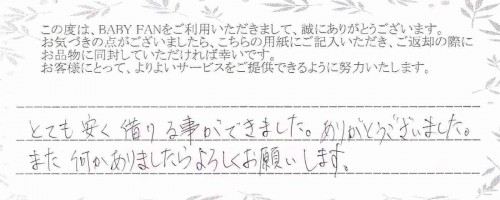 この度は、BABY FANをご利用いただきまして、誠にありがとうございます。
お気づきの点がございましたら、こちらの用紙にご記入いただき、ご返却の際に
お品物に同封していただければ幸いです。
お客様にとって、よりよいサービスをご提供できるように努力いたします。
とても安く借りる事ができました。ありがとうございました。
また何かありましたらよろしくお願いします。